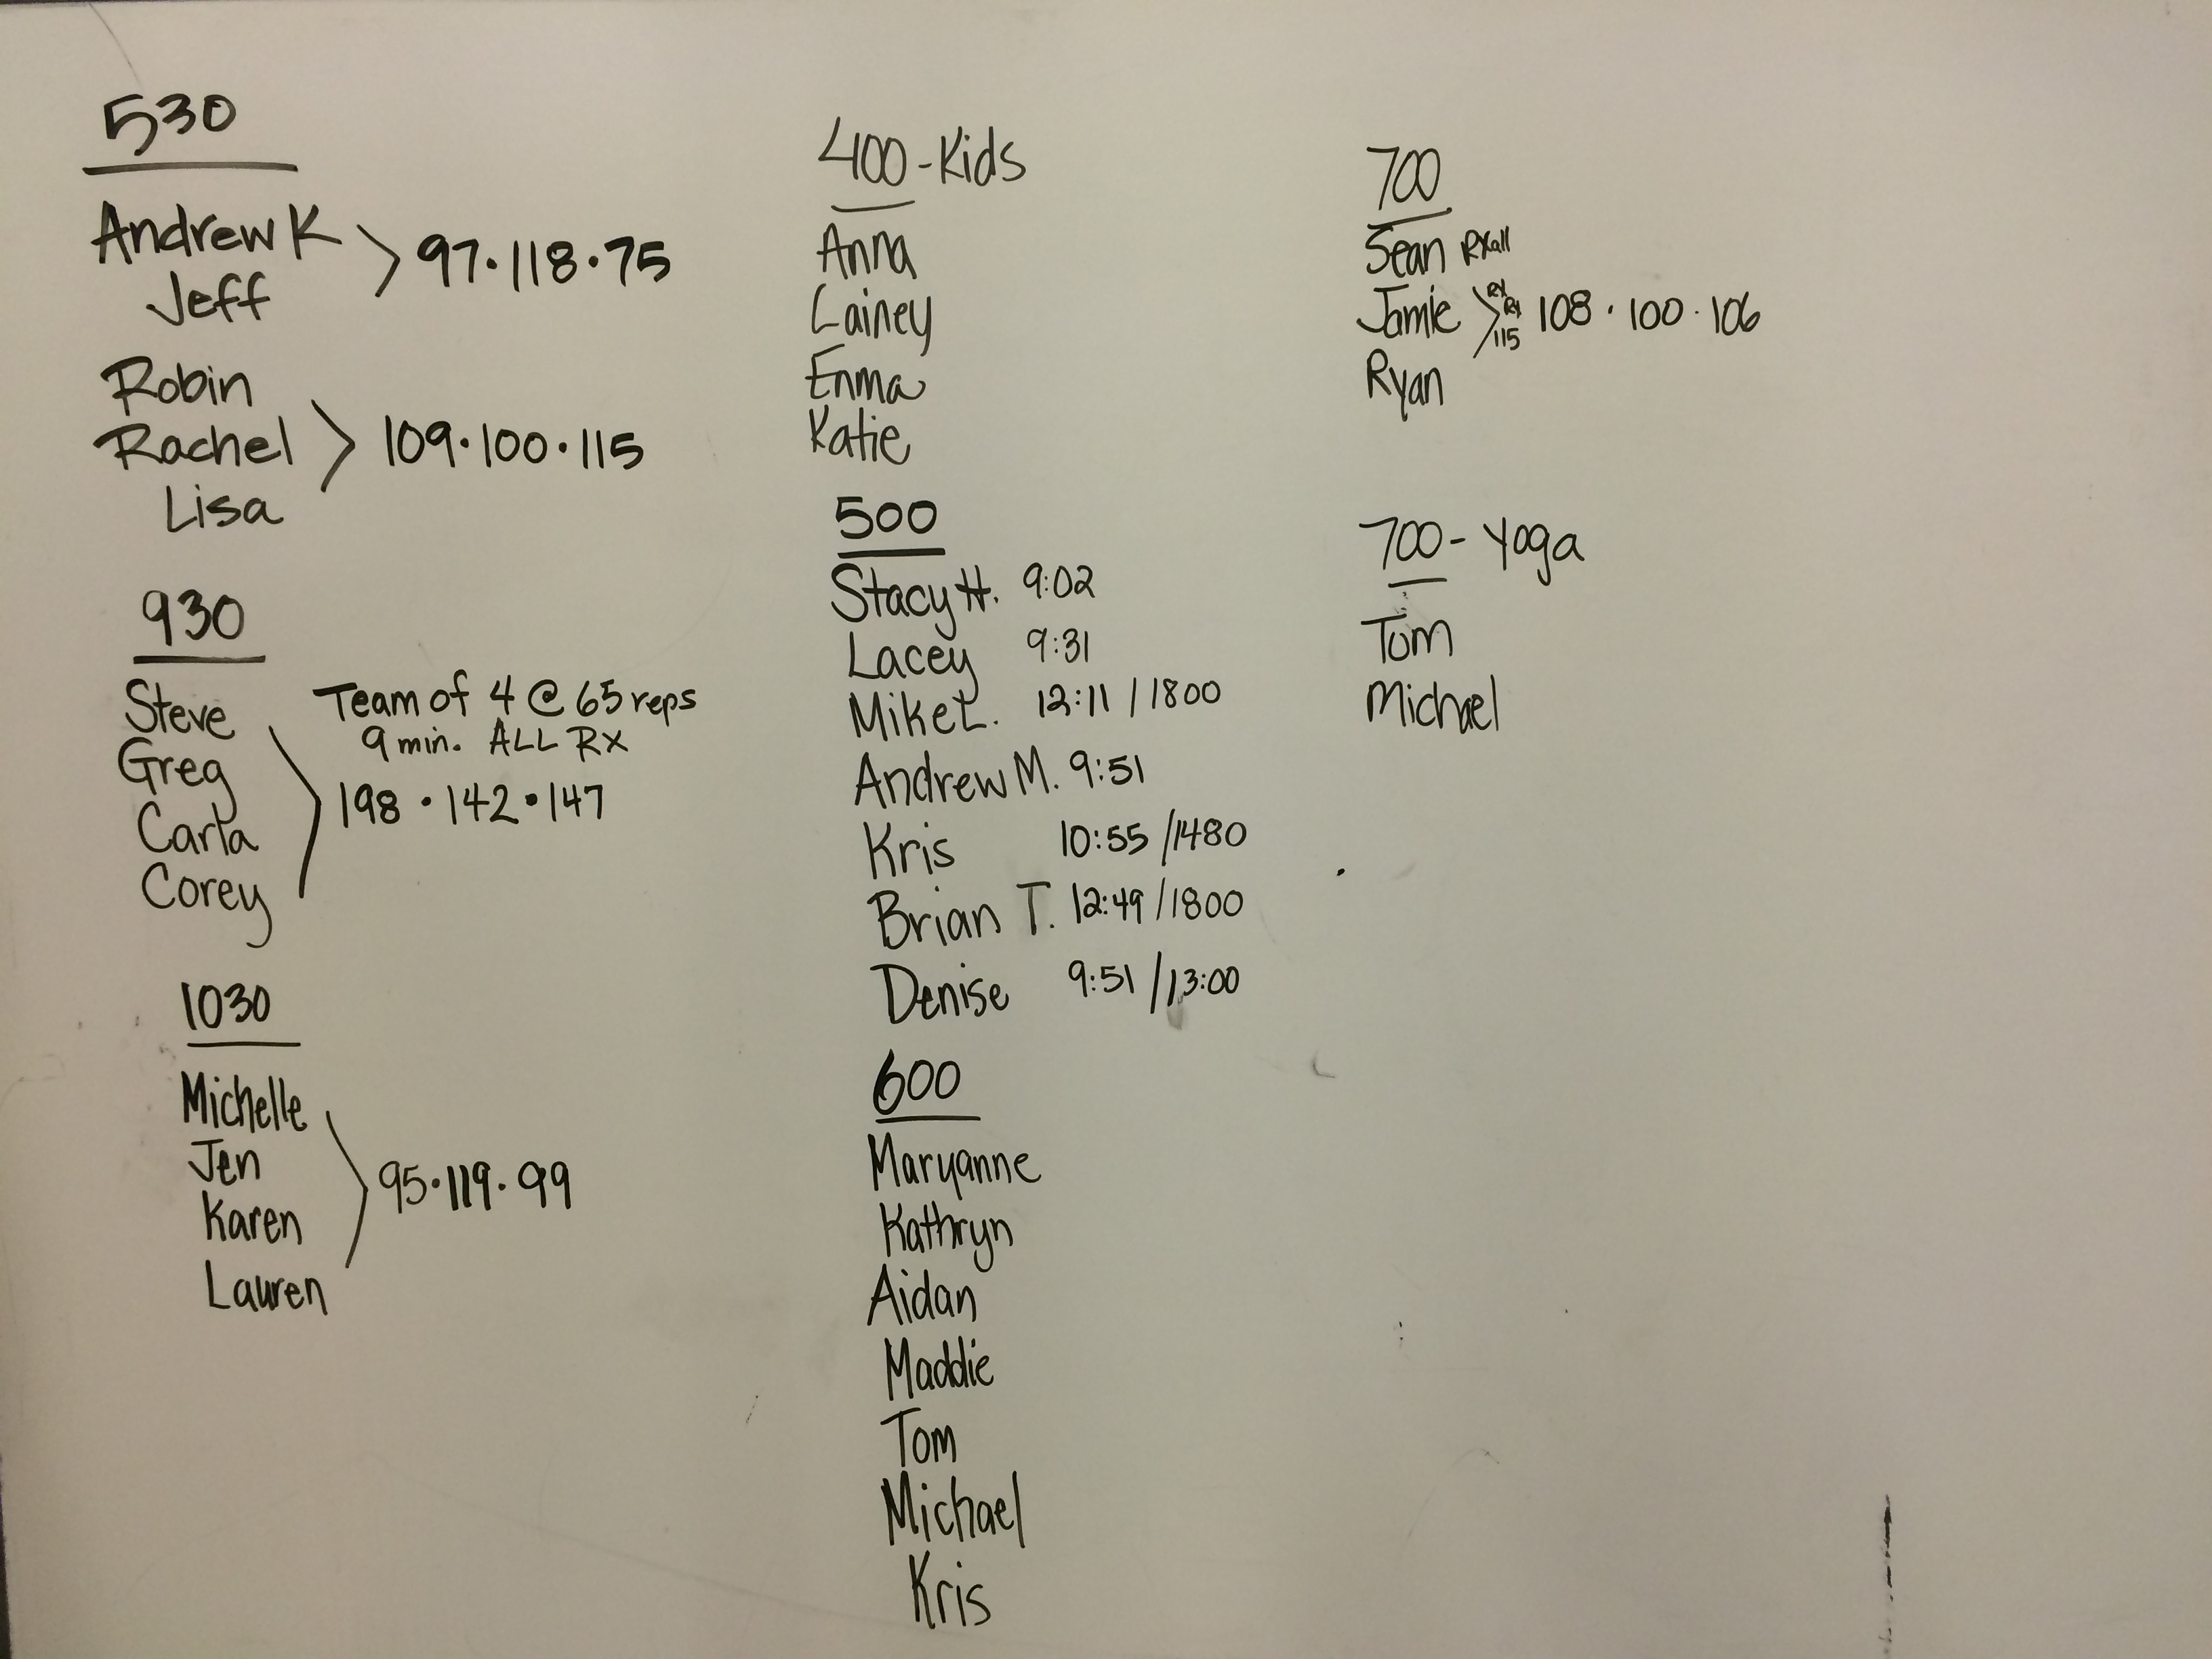 530
Andrew K
Jeff
97·118·75
Robin
Rachel
Lisa
109·100·115
930
Steve
Greg
Carla
Corey
Team of 4 @ 65 reps
9 min. ALL RX
198·142·147
1030
Michelle
Jen
Karen
Lauren
95·119·99
400-Kids
Anna
Lainey
Emma
Katie
500
Stacy H. 9:02
Lacey 9:31
Mike L. 12:11 / 1800
Andrew M. 9:51
Kris 10:55 / 1480
Brian T. 12:49 / 1800
Denise 9:51 / 13:00
600
Maryanne
Kathryn
Aidan
Maddie
Tom
Michael
Kris
700
Sean RX all
Jamie RX RX 115 108·100·106
Ryan
700- Yoga
Tom
Michael